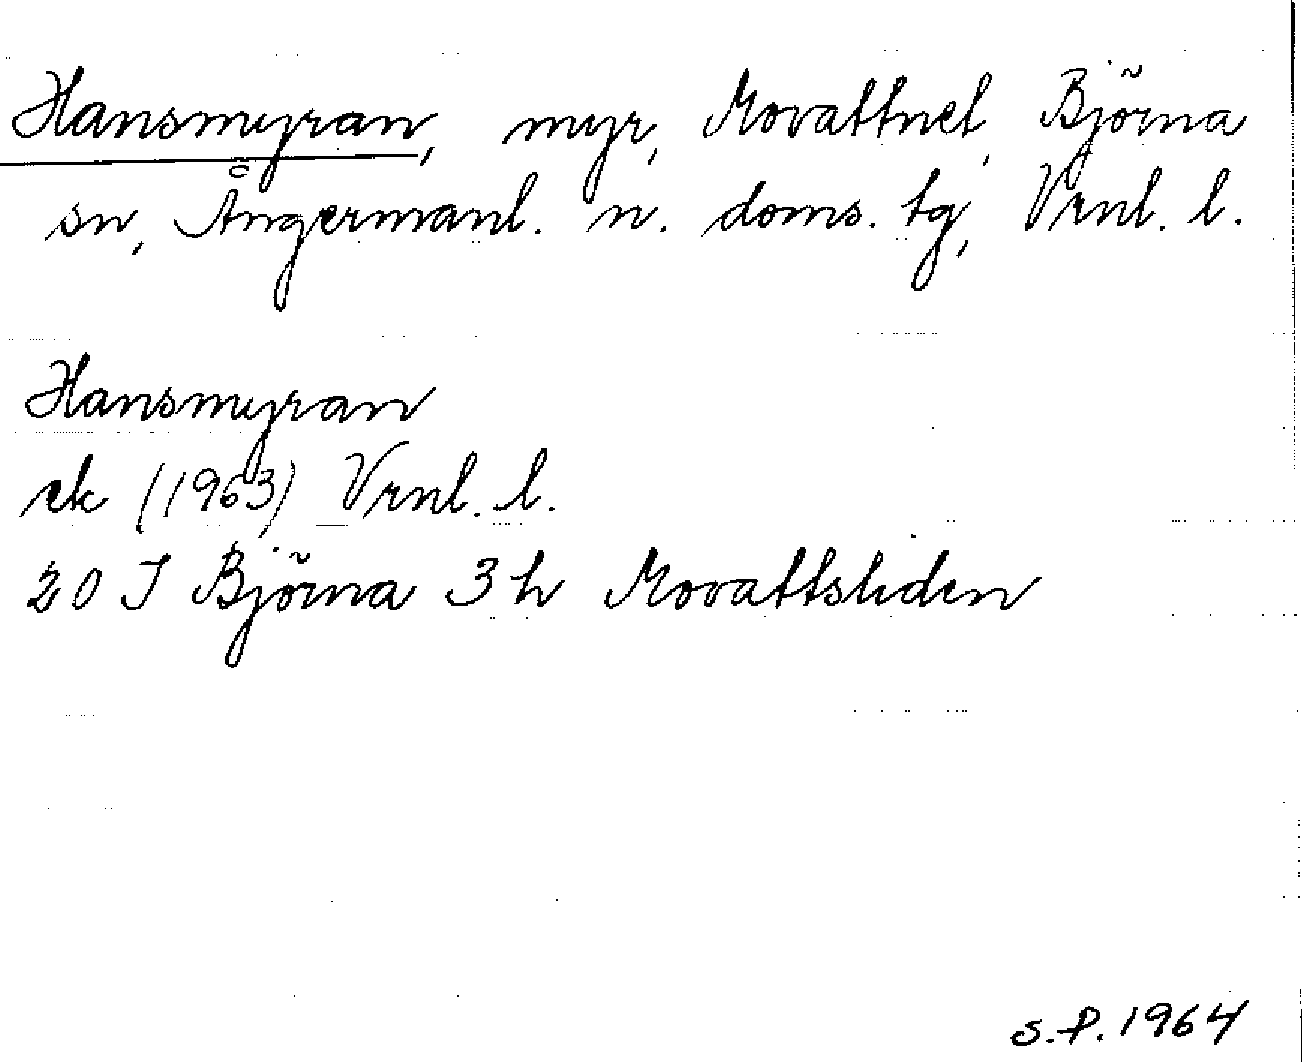 Hansmyran, myr, Movattnet, Björna
sn, Ångermanl. n. doms. tg, Vrnl. l.
Hansmyran
ek (1963) Vrnl. l.
20 J Björna 3 h Movattsliden
S.P. 1964